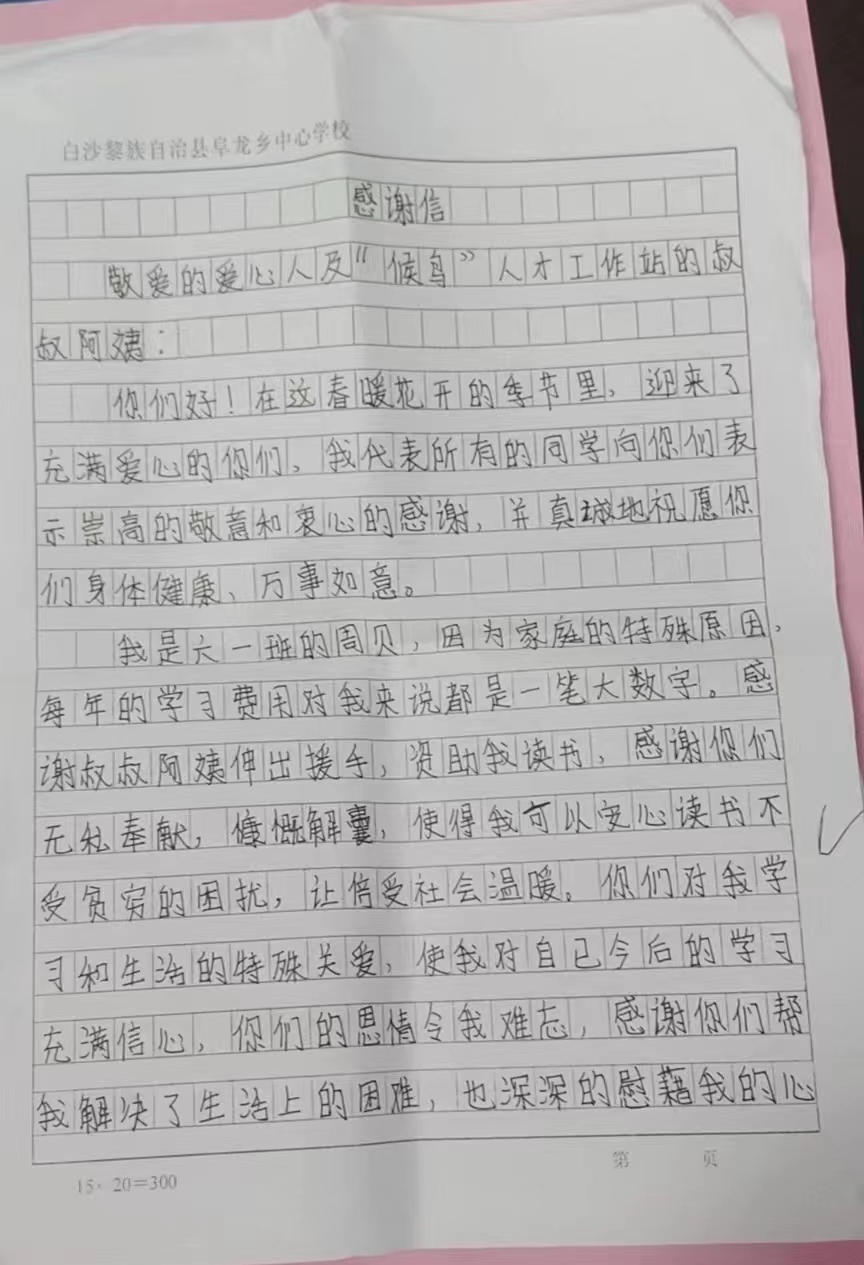 白沙黎族自治县阜龙乡中心学校
感谢信
敬爱的爱心人及“候鸟”人才工作站的叔
叔阿姨：
你们好！在这春暖花开的季节里，迎来了
充满爱心的你们，我代表所有的同学向你们表
示崇高的敬意和衷心的感谢，并真诚地祝愿你
们身体健康、万事如意。
我是六一班的周贝，因为家庭的特殊原因，
每年的学习费用对我来说都是一笔大数字。感
谢叔叔阿姨伸出援手，资助我读书，感谢你们
无私奉献，慷慨解囊，使得我可以安心读书不
受贫穷的困扰，让倍受社会温暖。你们对我学
习和生活的特殊关爱，使我对自已今后的学习
充满信心，你们的恩情令我难忘，感谢你们帮
我解决了生活上的困难，也深深的慰藉我的心
第 页
15×20=300